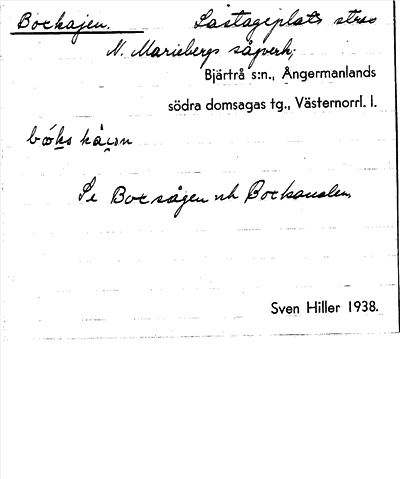 Bockajen. Lastageplats strax
N. Mariebergs sågverk;
Bjärtrå s:n., Ångermanlands
södra domsagas tg., Västernorrl. l.
Se Bocsågen och Bockanalen
Sven Hiller 1938.